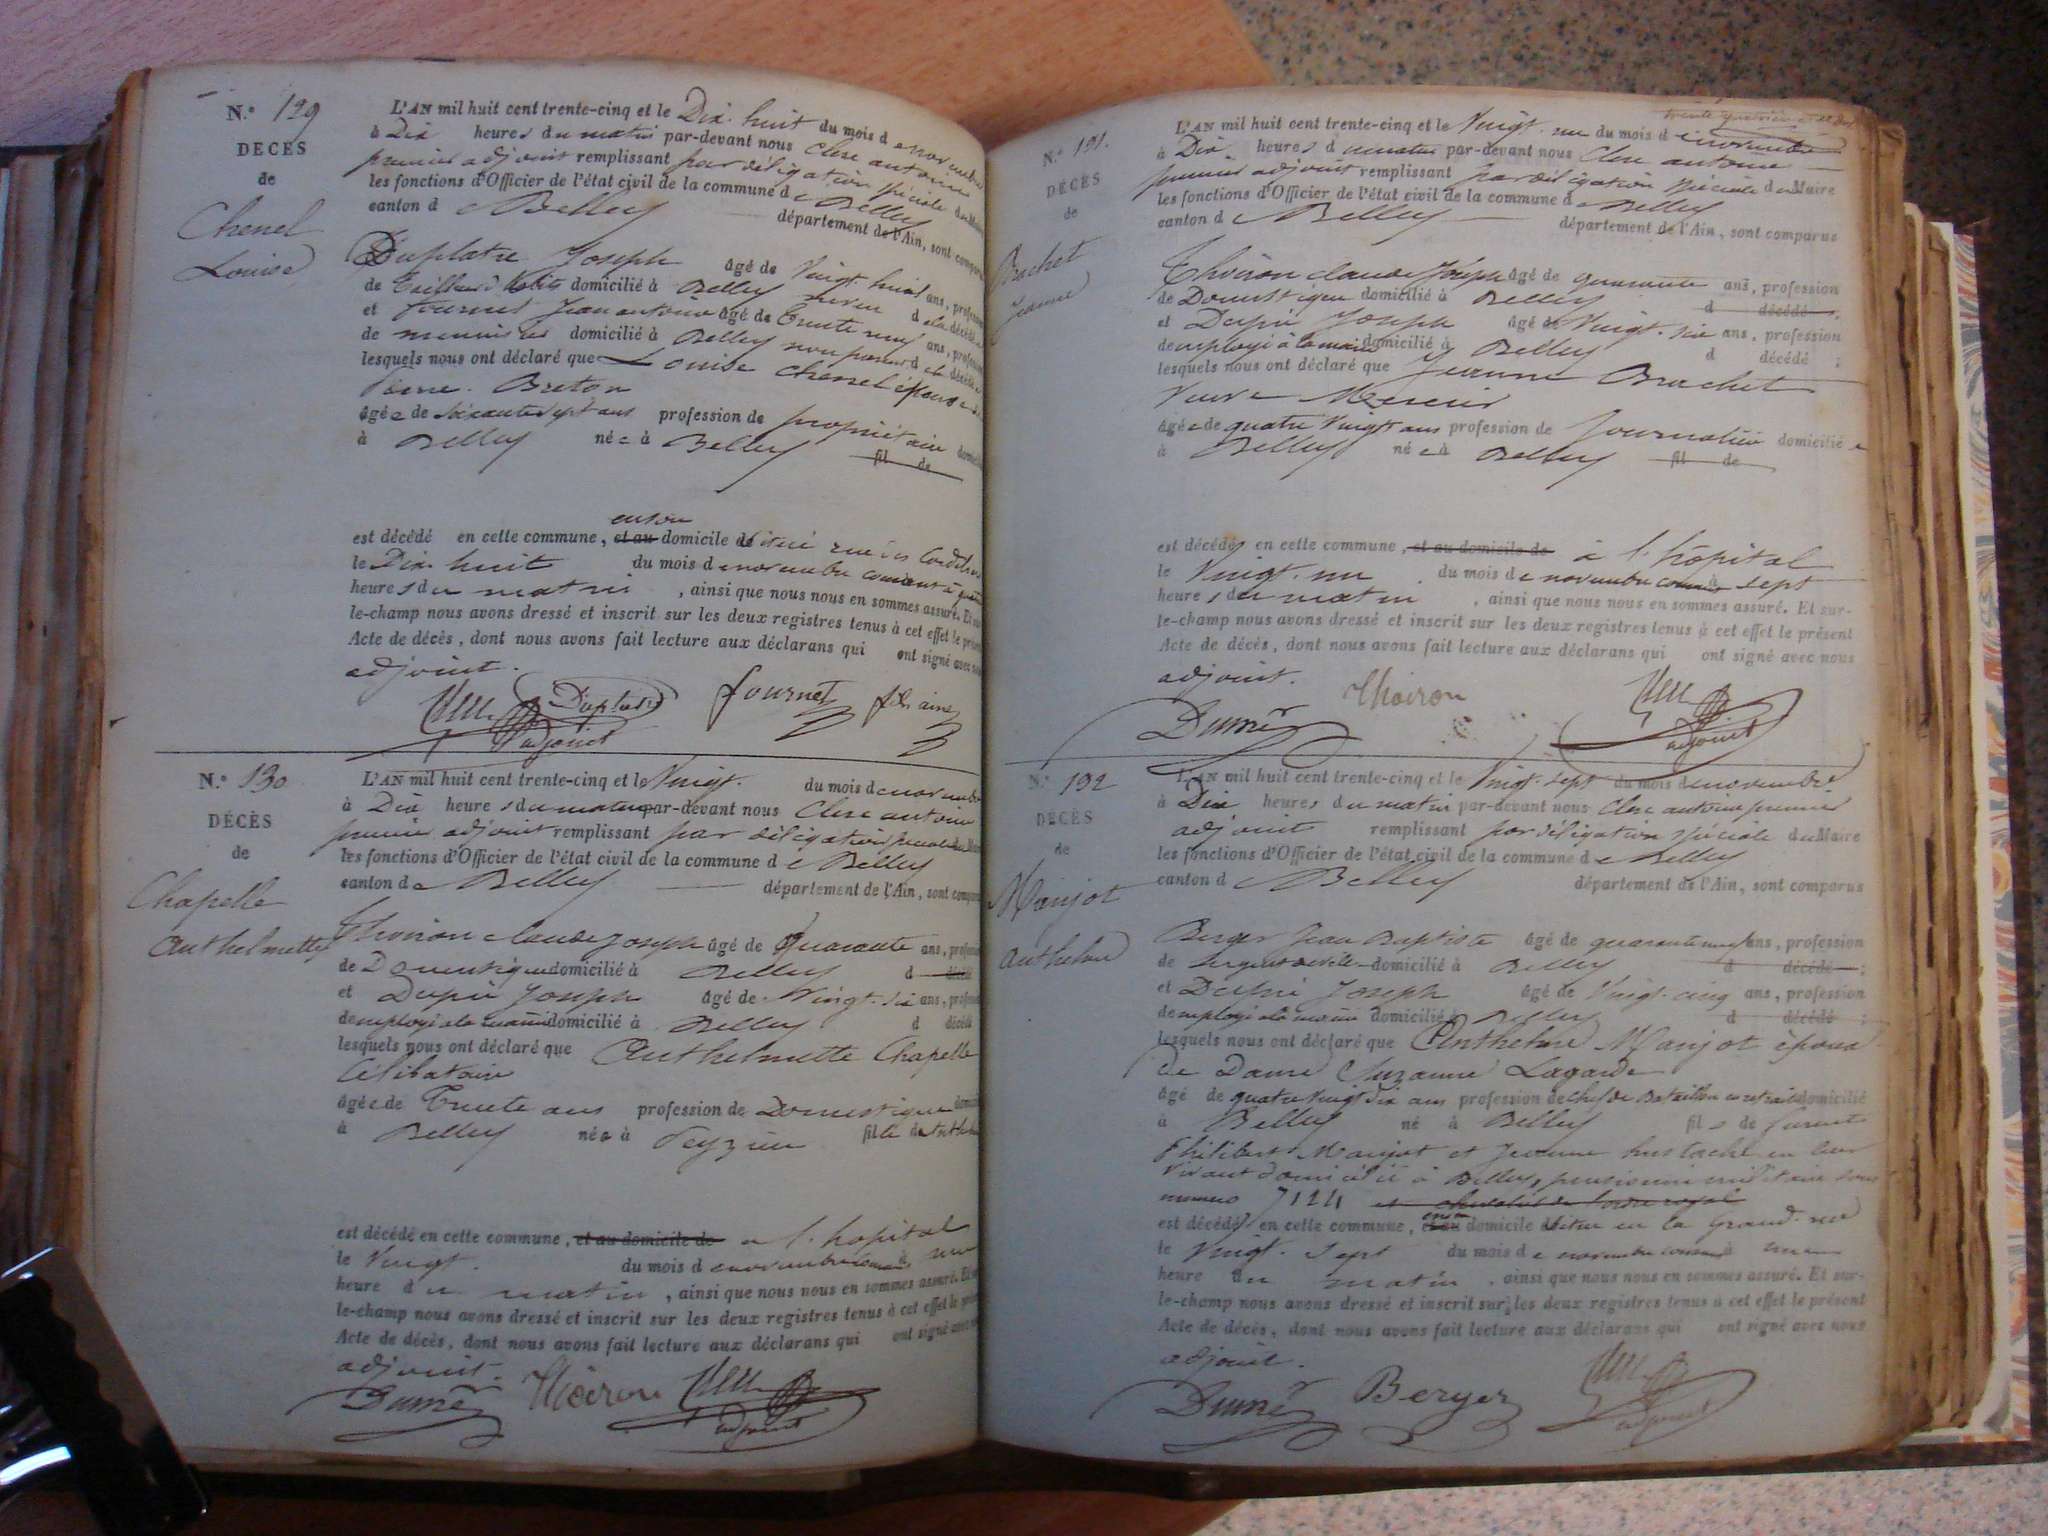 N.° 129
DÉCÈS
de
Chenel
Louise
L'AN mil huit cent trente-cinq et le Dix-huit du mois de novembre
à Dix heures du matin par-devant nous Clerc antoine
premier adjoint remplissant par délégation spéciale du
les fonctions d'Officier de l'état civil de la commune de Belley
canton de Belley département de l'Ain, sont
Duplatre Joseph âgé de Vingt huit ans,
de Tailleur d'habits domicilié à Belley neveu de la décédée
et fournet Jean antoine âgé de trente neuf ans,
de menuisier domicilié à Belley non parent de la décédée
lesquels nous ont déclaré que Louise Chenel épouse de
Pierre Breton
âgée de soixante sept ans profession de propriétaire
à Belley née à Belley fil de
en son
est décédé en cette commune, et au domicile de situé rue des Cordeliers
le Dix huit du mois de novembre courant à
heures du matin, ainsi que nous nous en sommes assuré. Et
le-champ nous avons dressé et inscrit sur les deux registres tenus à cet effet le
Acte de décès, dont nous avons fait lecture aux déclarans qui ont signé avec
adjoint.
Duplatre fournet fils ainé
adjoint
N.° 130
DÉCÈS
de
Chapelle
Anthelmette
L'AN mil huit cent trente-cinq et le Vingt du mois de novembre
à Dix heures du matin par-devant nous Clerc antoine
premier adjoint remplissant par délégation spéciale du
les fonctions d'Officier de l'état civil de la commune de Belley
canton de Belley département de l'Ain, sont
Thoiron claude joseph âgé de quarante ans,
de Domestique domicilié à Belley d décédé
et Dupré Joseph âgé de Vingt-six ans,
de employé à la mairie domicilié à Belley d décédé
lesquels nous ont déclaré que Anthelmette Chapelle
Célibataire
âgée de Trente ans profession de Domestique
à Belley née à Peyzieu fille de
est décédé en cette commune, et au domicile de à l'hopital
le Vingt du mois de novembre courant à une
heure du matin, ainsi que nous nous en sommes assuré.
le-champ nous avons dressé et inscrit sur les deux registres tenus à cet effet le
Acte de décès, dont nous avons fait lecture aux déclarans qui ont signé avec
adjoint.
Thoiron
adjoint
N.° 131.
DÉCÈS
de
Brachet
Jeanne
L'AN mil huit cent trente-cinq et le Vingt-un du mois de novembre
à Dix heures du matin par-devant nous Clerc antoine
premier adjoint remplissant par délégation spéciale du Maire
les fonctions d'Officier de l'état civil de la commune de Belley
canton de Belley département de l'Ain, sont comparus
Thoiron claude Joseph âgé de quarante ans, profession
de Domestique domicilié à Belley d décédé ;
et Dupré Joseph âgé de Vingt-six ans, profession
de employé à la mairie domicilié à Belley d décédé ;
lesquels nous ont déclaré que Jeanne Brachet
Veuve Mercier
âgée de quatre Vingt ans profession de Journalière domiciliée
à Belley née à Belley fil de
est décédé en cette commune, et au domicile de à l'hôpital
le Vingt-un du mois de novembre courant à sept
heures du matin, ainsi que nous nous en sommes assuré. Et sur-
le-champ nous avons dressé et inscrit sur les deux registres tenus à cet effet le présent
Acte de décès, dont nous avons fait lecture aux déclarans qui ont signé avec nous
adjoint.
Thoiron
adjoint
N.° 132
DÉCÈS
de
Manjot
Anthelme
L'AN mil huit cent trente-cinq et le Vingt-sept du mois de novembre
à Dix heures du matin par-devant nous Clerc antoine premier
adjoint remplissant par délégation spéciale du Maire
les fonctions d'Officier de l'état civil de la commune de Belley
canton de Belley département de l'Ain, sont comparus
Berger Jean Baptiste âgé de quarante neuf ans, profession
de sergent de ville domicilié à Belley d décédé ;
et Dupré Joseph âgé de Vingt-cinq ans, profession
de employé à la mairie domicilié à Belley d décédé ;
lesquels nous ont déclaré que Anthelme Manjot époux
de Dame Suzanne Lagarde
âgé de quatre Vingt Dix ans profession de chef de Bataillon en retraite domicilié
à Belley né à Belley fils de furent
Philibert Manjot et Jeanne hustache en leur
Vivant domiciliés à Belley, pensionné militaire sous
numero 7124 et chevalier de l'ordre royal
est décédé en cette commune, et au domicile de situé en la Grand-rue
le Vingt-sept du mois de novembre courant à une
heure du matin, ainsi que nous nous en sommes assuré. Et sur-
le-champ nous avons dressé et inscrit sur les deux registres tenus à cet effet le présent
Acte de décès, dont nous avons fait lecture aux déclarans qui ont signé avec nous
adjoint.
Berger
adjoint